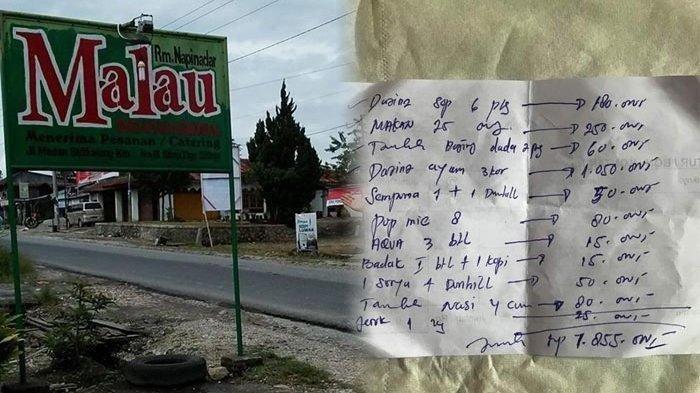 Rm. Napinadar
Malau
Menerima Pesanan / Catering
Jl Medan
Daging 6 → 180.000
MAKAN 25 org → 250.000
Tambah Daging dada → 60.000
Daging ayam 3 → 1.050.000
Sempurna 1 + 1 Dunhill → 50.000
Pop mie 8 → 80.000
AQUA 3 btl → 15.000,-
Badak I btl + 1 kopi → 15.000,-
1 Sorya + Dunhill → 50.000,-
Tambah Nasi 4 → 80.000,-
Jeruk 1 kg 25.000,-
Rp 1.855.000,-